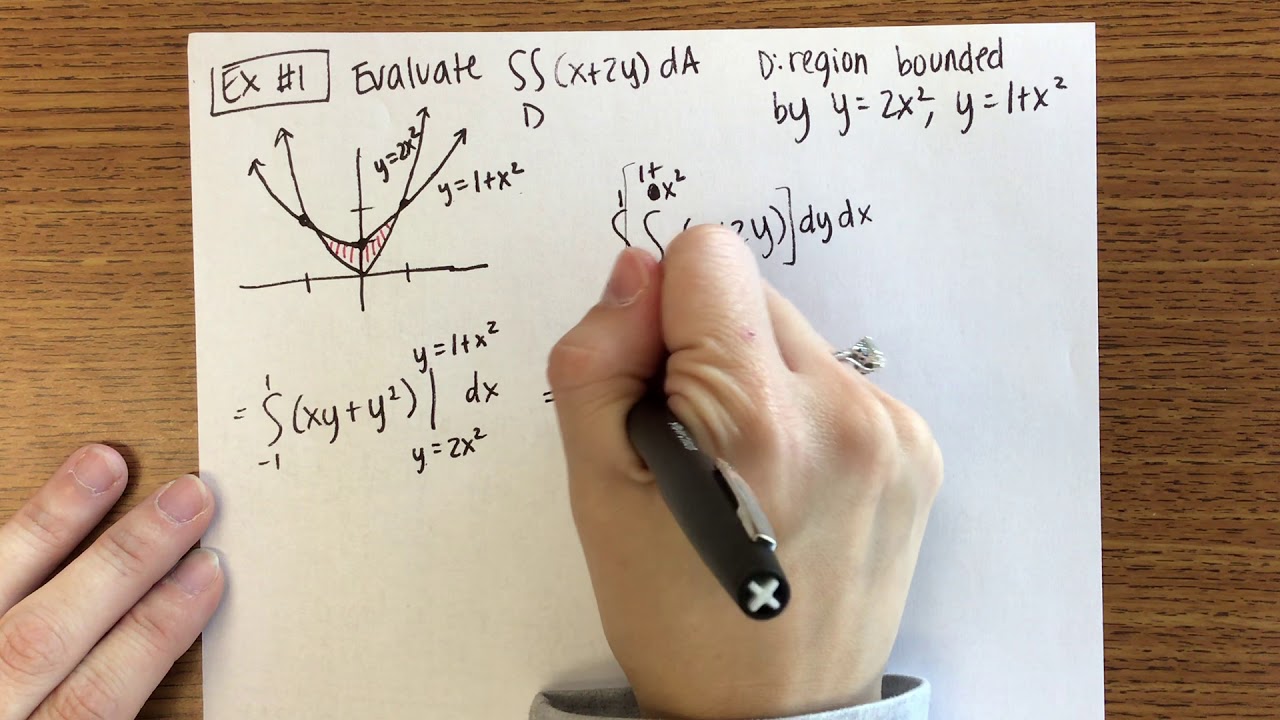 Ex #1 Evaluate ∫∫(x+2y) dA D: region bounded
D by y=2x², y=1+x²
y=2x²
y=1+x²
1 1+
x²
∫ ∫ 2y)] dy dx
y=1+x²
1
= ∫ (xy+y²) | dx =
-1 y=2x²